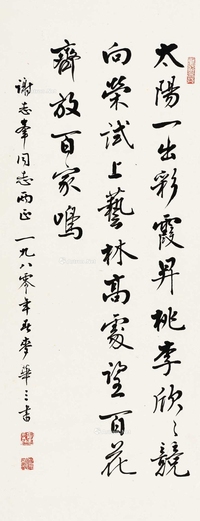 太陽一出彩霞昇桃李欣〻競
向榮試上藝林高處望百花
齊放百家鳴
謝志峯同志兩正 一九八零年春麥華三書